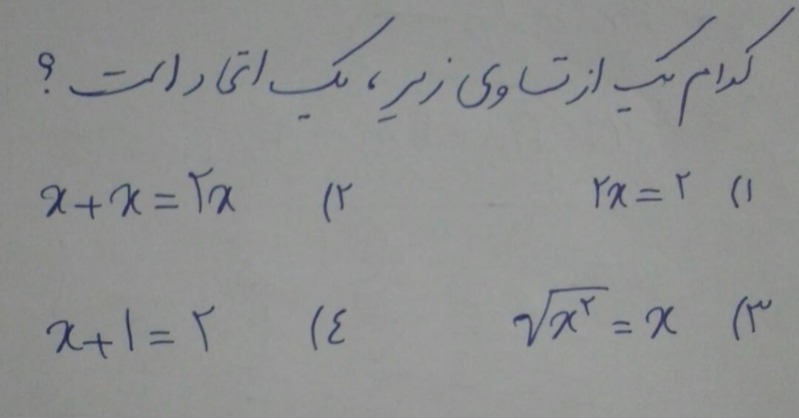 کدام یک از تساوی زیر، یک اتحاد است؟
۱) ۲x = ۲   ۲) x + x = ۲x
۳) √x۲ = x   ٤) x + ۱ = ۲